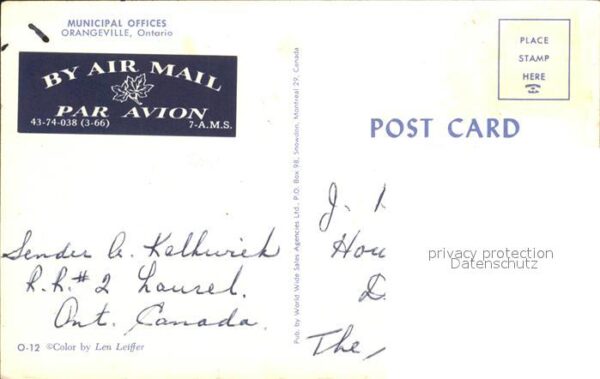 MUNICIPAL OFFICES
ORANGEVILLE, Ontario
BY AIR MAIL
PAR AVION
43-74-038 (3-66) 7-A.M.S.
Sender A.
R.R.# 2 Laurel.
Ont. Canada.
O-12 ©Color by Len Leiffer
Pub. by World Wide Sales Agencies Ltd., P.O. Box 98, Snowdon, Montreal 29, Canada
PLACE
STAMP
HERE
POST CARD
J.
Hou
D
The
privacy protection
Datenschutz